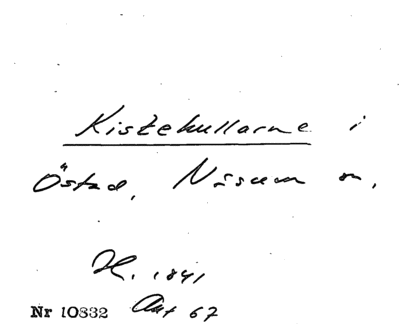 Kistekullarne i
Östad, Näsum sn,
H. 1841
Nr 10832 Akt 67